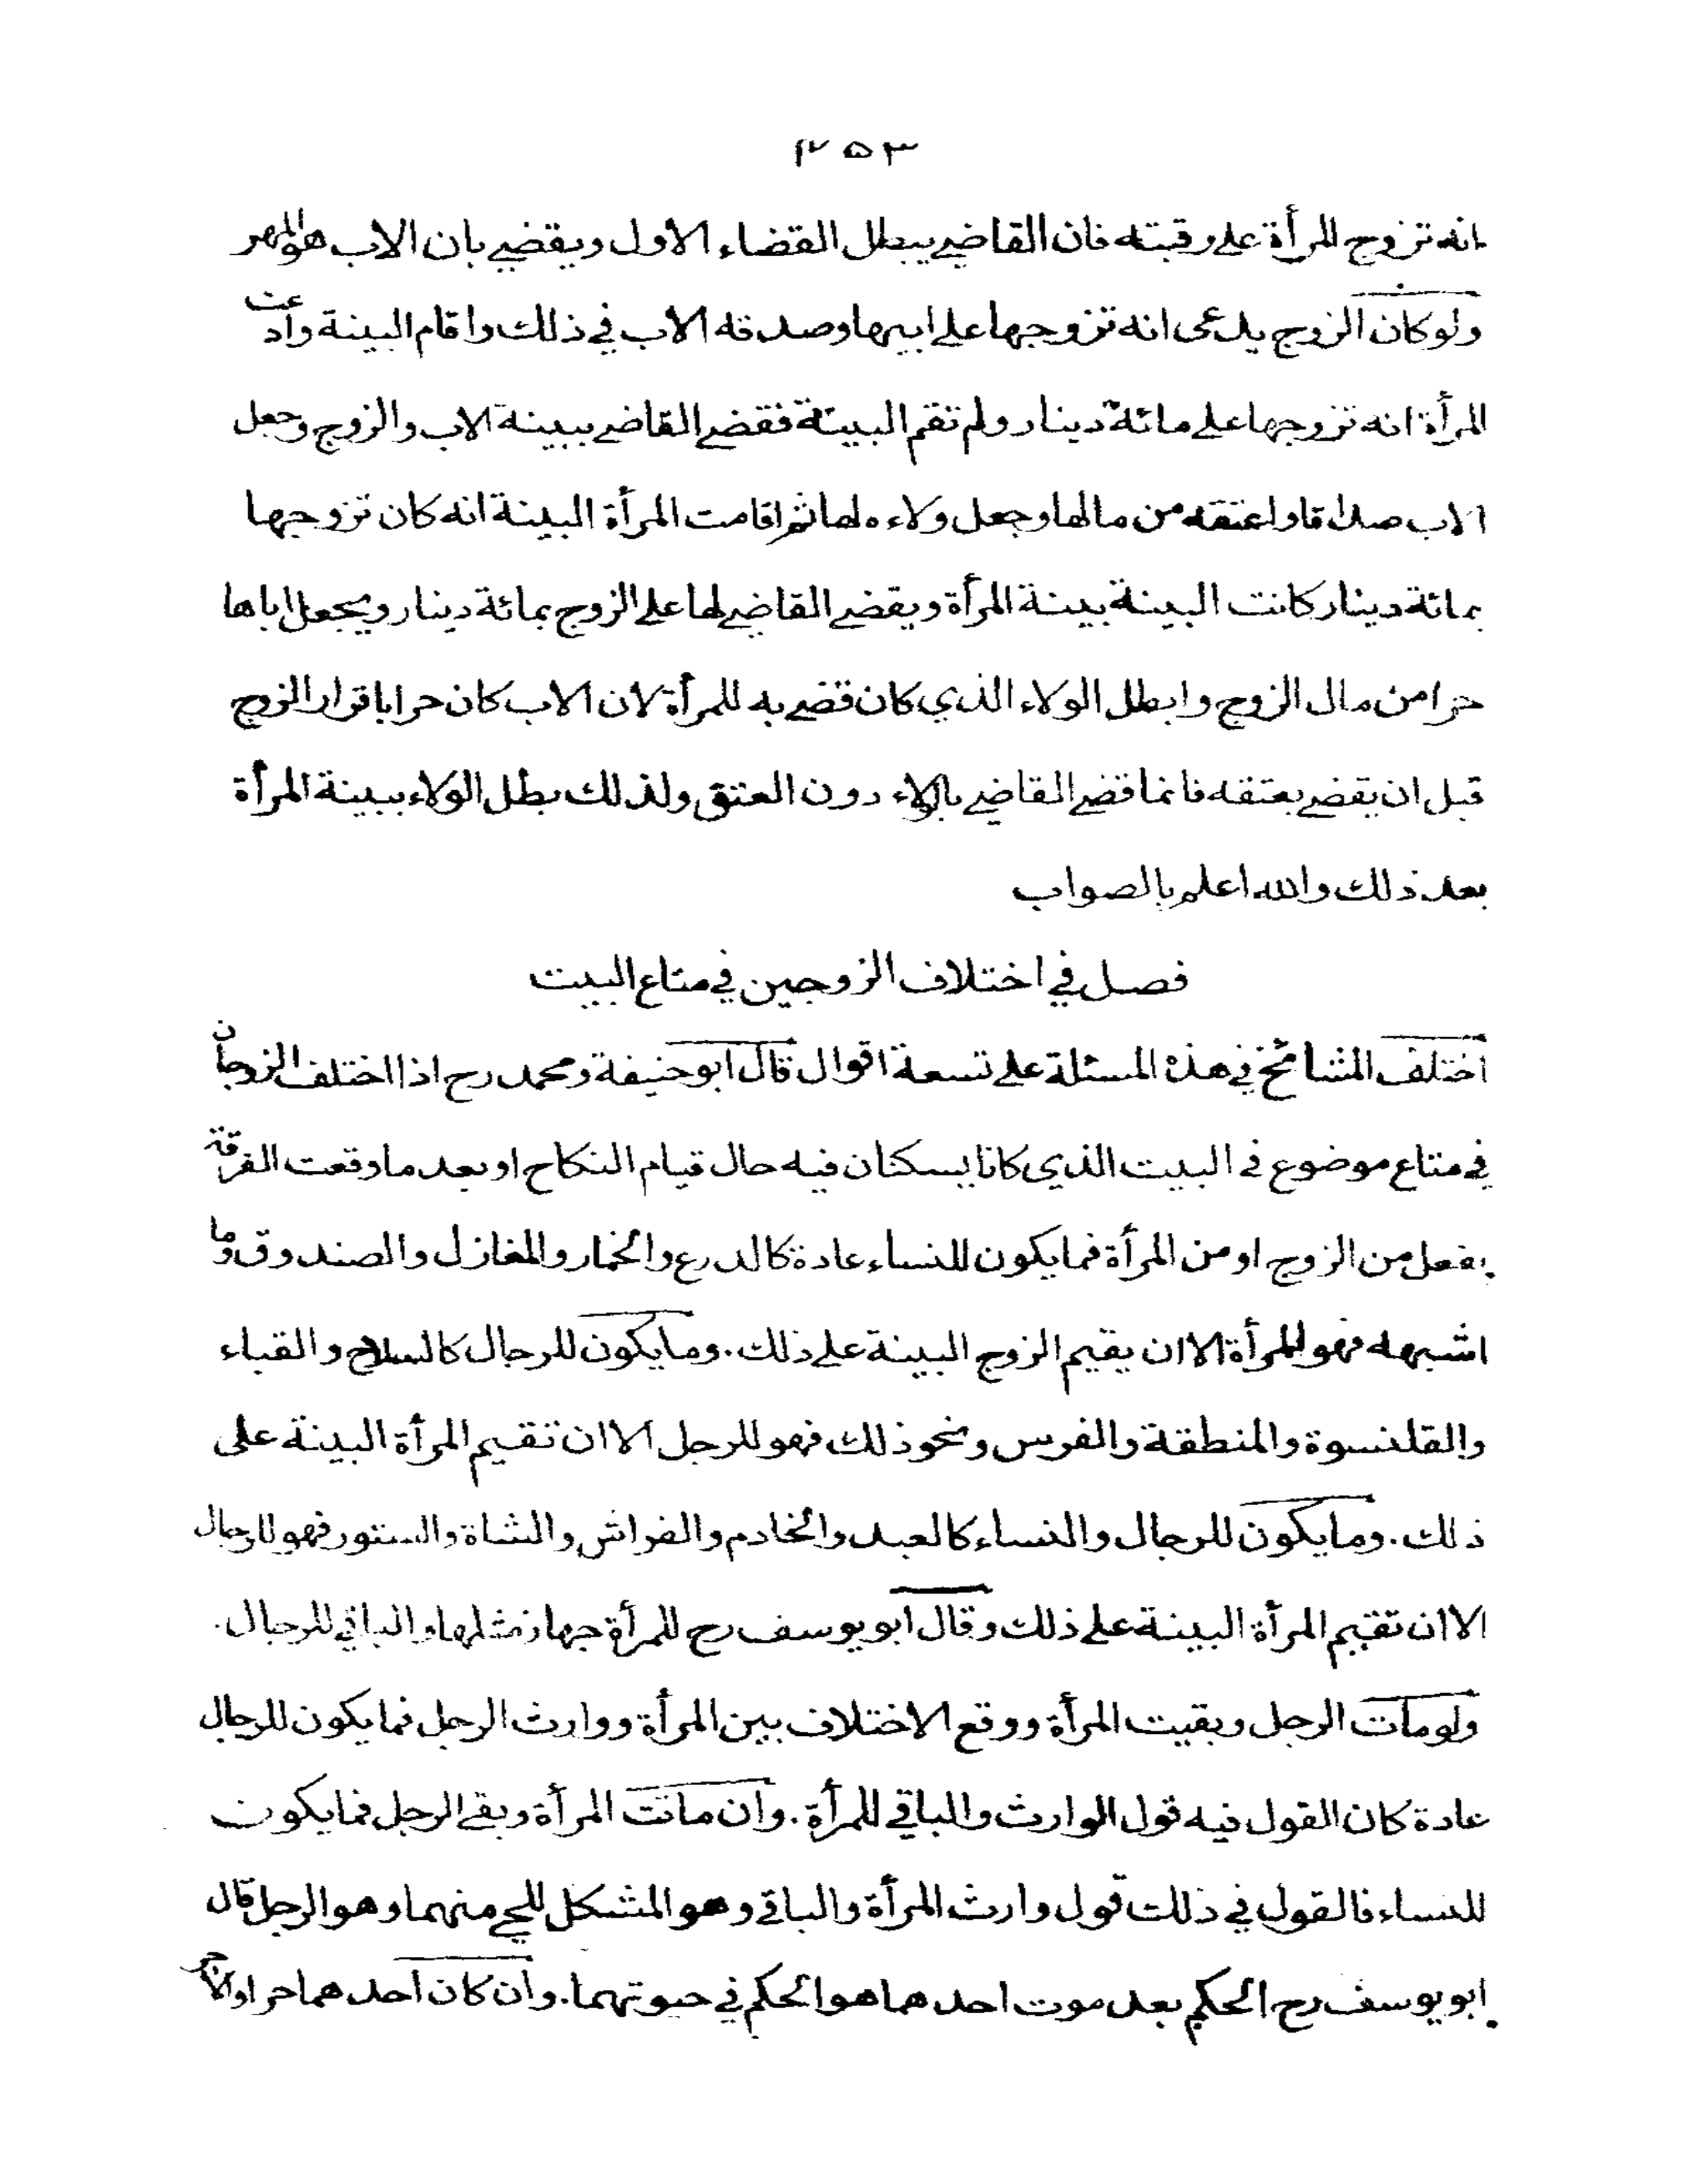 ٣٥٣
انه تزوج المرأة على رقبته فان القاضي يبطل القضاء الاول ويقضي بان الاب هو المهر
ولو كان الزوج يدعى انه تزوجها على ابيها وصدقه الاب في ذلك واقام البينة وادعت
المرأة انه تزوجها على مائة دينار ولم تقم البينة فقضى القاضي ببينة الاب والزوج وجعل
الاب صداقا واعتقه من مالها وجعل ولاءه لها ثم اقامت المرأة البينة انه كان تزوجها
بمائة دينار كانت البينة بينة المرأة ويقضي القاضي لها على الزوج بمائة دينار ويجعل اباها
حرا من مال الزوج وابطل الولاء الذي كان قضى به للمرأة لان الاب كان حرا باقرار الزوج
قبل ان يقضي بعتقه فانما قضى القاضي بالولاء دون العتق ولذلك بطل الولاء ببينة المرأة
بعد ذلك والله اعلم بالصواب
فصل في اختلاف الزوجين في متاع البيت
اختلف المشائخ في هذه المسئلة على تسعة اقوال قال ابو حنيفة ومحمد رح اذا اختلف الزوجان
في متاع موضوع في البيت الذي كانا يسكنان فيه حال قيام النكاح او بعد ما وقعت الفرقة
بفعل من الزوج او من المرأة فما يكون للنساء عادة كالدرع والخمار والمغازل والصندوق وما
اشبهه فهو للمرأة الا ان يقيم الزوج البينة على ذلك. وما يكون للرجال كالسلاح والقباء
والقلنسوة والمنطقة والفرس ونحو ذلك فهو للرجل الا ان تقيم المرأة البينة على
ذلك. وما يكون للرجال والنساء كالعبد والخادم والفراش والشاة والستور فهو للرجال
الا ان تقيم المرأة البينة على ذلك وقال ابو يوسف رح للمرأة جهاز مثلها والباقي للرجال.
ولو مات الرجل وبقيت المرأة ووقع الاختلاف بين المرأة ووارث الرجل فما يكون للرجال
عادة كان القول فيه قول الوارث والباقي للمرأة. وان ماتت المرأة وبقي الرجل فما يكون
للنساء فالقول في ذلك قول وارث المرأة والباقي وهو المشكل للحي منهما وهو الرجل قال
ابو يوسف رح الحكم بعد موت احدهما هو الحكم في حيوتهما. وان كان احدهما حرا والآخر